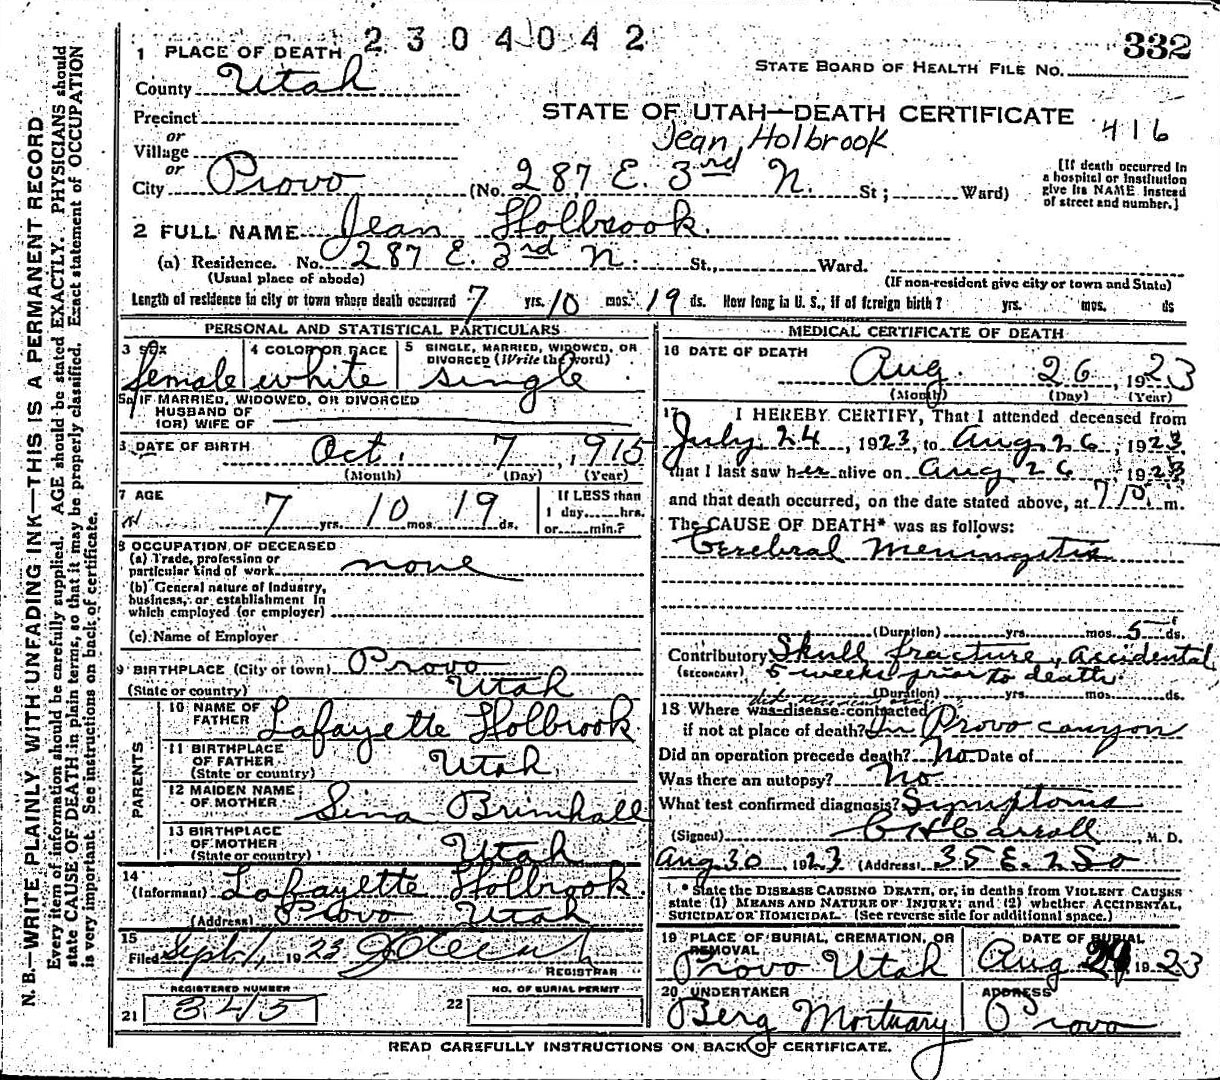 2304042
332
STATE BOARD OF HEALTH FILE NO.
STATE OF UTAH—DEATH CERTIFICATE
416
1 PLACE OF DEATH
County Utah
Precinct
or
Village
or
Jean Holbrook
City Provo (No. 287 E. 3rd N. St; Ward)
[If death occurred in a hospital or institution give its NAME instead of street and number.]
2 FULL NAME Jean Holbrook.
(a) Residence. No. 287 E. 3rd N. St., Ward.
(Usual place of abode) (If non-resident give city or town and State)
Length of residence in city or town where death occurred 7 yrs. 10 mos. 19 ds. How long in U. S., if of foreign birth? yrs. mos. ds
PERSONAL AND STATISTICAL PARTICULARS
3 SEX female
4 COLOR OR RACE white
5 SINGLE, MARRIED, WIDOWED, OR DIVORCED (Write the word) single
5a IF MARRIED, WIDOWED, OR DIVORCED
HUSBAND OF
(OR) WIFE OF
6 DATE OF BIRTH Oct. 7, 1915
(Month) (Day) (Year)
7 AGE 7 yrs. 10 mos. 19 ds.
If LESS than
1 day hrs.
or min.?
8 OCCUPATION OF DECEASED
(a) Trade, profession or
particular kind of work none
(b) General nature of Industry,
business, or establishment in
which employed (or employer)
(c) Name of Employer
9 BIRTHPLACE (City or town) Provo
(State or country) Utah
PARENTS
10 NAME OF FATHER Lafayette Holbrook
11 BIRTHPLACE OF FATHER (State or country) Utah
12 MAIDEN NAME OF MOTHER Sina Brimhall
13 BIRTHPLACE OF MOTHER (State or country) Utah
14
(Informant) Lafayette Holbrook.
(Address) Provo Utah
15
Filed Sept. 1, 1923
REGISTRAR
REGISTERED NUMBER
21 345
22 NO. OF BURIAL PERMIT
MEDICAL CERTIFICATE OF DEATH
16 DATE OF DEATH
Aug. 26, 1923
(Month) (Day) (Year)
17 I HEREBY CERTIFY, That I attended deceased from
July 24, 1923, to Aug. 26, 1923
that I last saw her alive on Aug 26, 1923
and that death occurred, on the date stated above, at m.
The CAUSE OF DEATH* was as follows:
Cerebral Meningitis
(Duration) yrs. mos. 5 ds.
Contributory Skull fracture, Accidental
(SECONDARY) 5 weeks prior to death
(Duration) yrs. mos. ds.
18 Where was disease contracted
if not at place of death? In Provo canyon
Did an operation precede death? No Date of
Was there an autopsy? No
What test confirmed diagnosis? Symptoms
(Signed) C H Carroll, M. D.
Aug 30 1923 (Address) 35 E. 2 So
* State the DISEASE CAUSING DEATH, or, in deaths from VIOLENT CAUSES
state (1) MEANS AND NATURE OF INJURY; and (2) whether ACCIDENTAL,
SUICIDAL OR HOMICIDAL. (See reverse side for additional space.)
19 PLACE OF BURIAL, CREMATION, OR REMOVAL
Provo Utah
DATE OF BURIAL
Aug 29 1923
20 UNDERTAKER
Berg Mortuary
ADDRESS
Provo
READ CAREFULLY INSTRUCTIONS ON BACK OF CERTIFICATE.
N. B.—WRITE PLAINLY, WITH UNFADING INK—THIS IS A PERMANENT RECORD
Every item of information should be carefully supplied. AGE should be stated EXACTLY. PHYSICIANS should
state CAUSE OF DEATH in plain terms, so that it may be properly classified. Exact statement of OCCUPATION
is very important. See instructions on back of certificate.